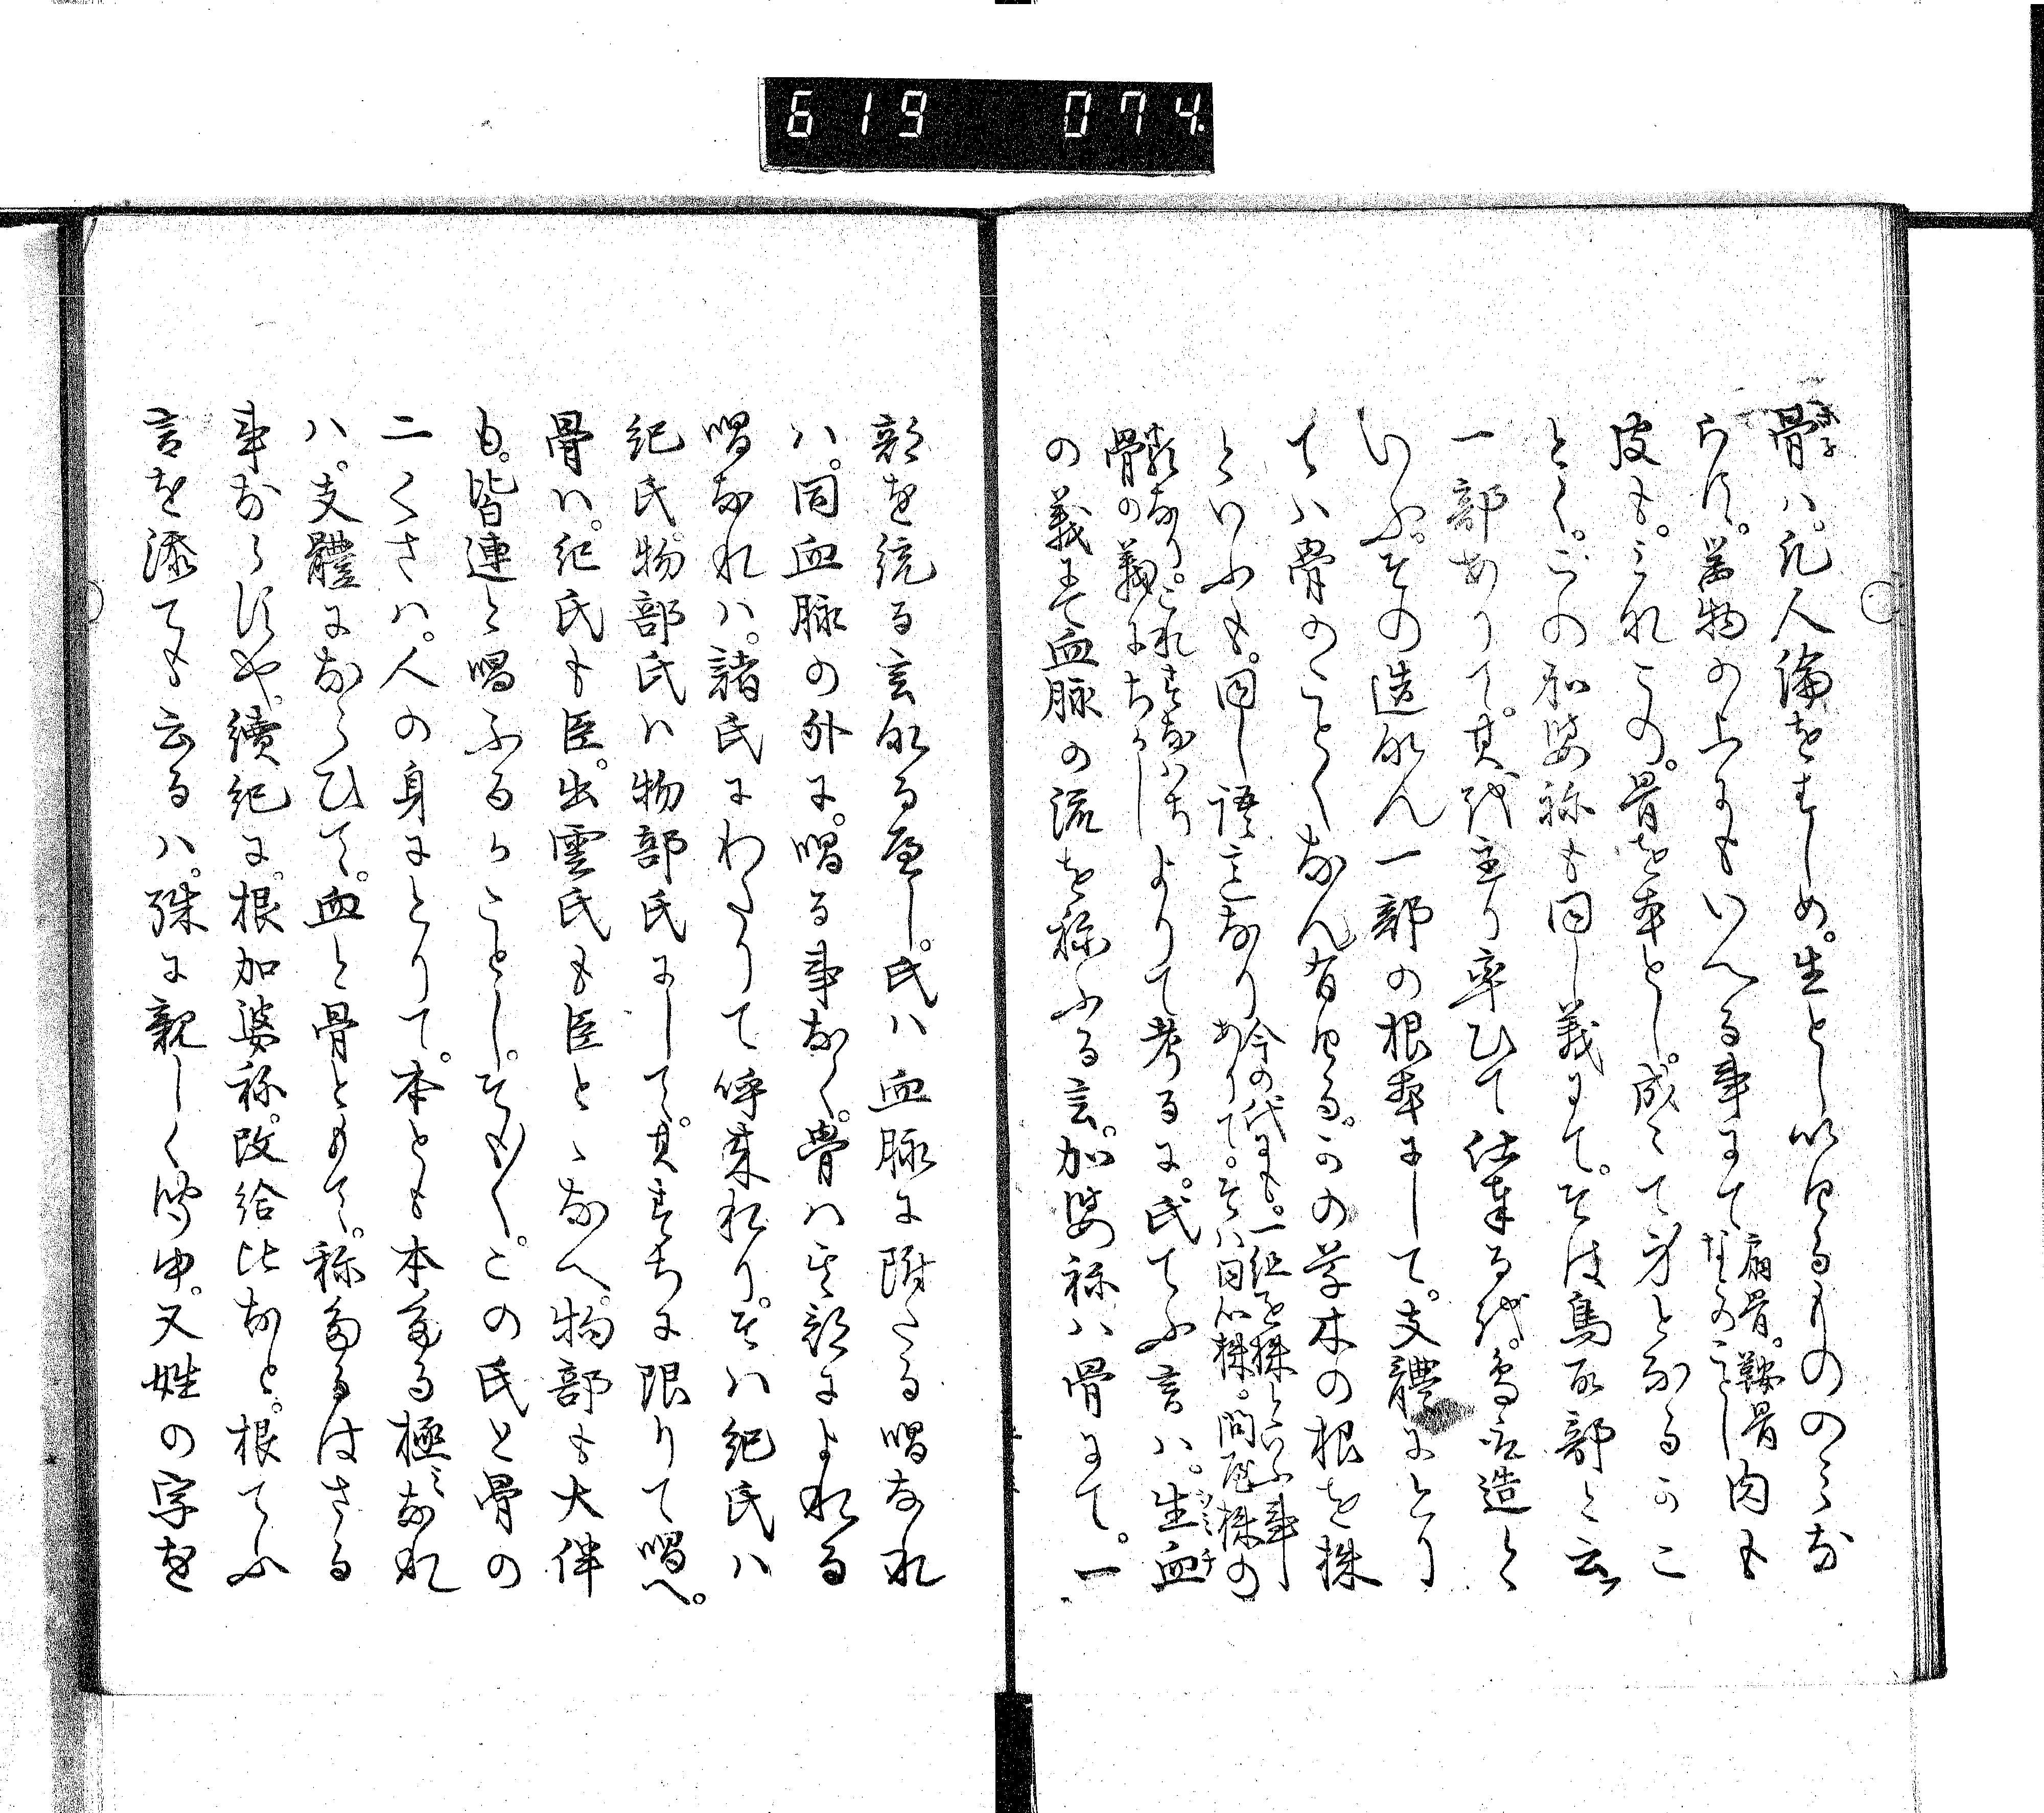 619 074
骨ハ。凡人倫をはしめ。生としいけるものゝみな
らす。器物の上にもいへる事にて 扇骨。鞍骨なとのことし 肉も
皮も。みなこの。骨を本とし。成て身となるかこ
とく。この加婆祢も同し義にて。そは鳥取部と云
一部ありて。其代主り率ひて仕奉る代。鳥取造と
いふ。その造なん一部の根本にして。支體にとり
てハ骨のことくなん有ける。かの草木の根を株
といふも。同し語言なり 今の代にも。一組を株といふ事ありて。そハ同心株。問屋株の
類なり。これすなはち骨の義にちかし よりて考るに。氏てふ言ハ。生血
の義にて血脉の流を称ふる言。加婆祢ハ骨にて。一
部を統る言なるへし。氏ハ血脉に附たる唱なれ
ハ。同血脉の外に。唱る事なく。骨ハその部によれる
唱なれハ。諸氏にわたりて呼来れり。そハ紀氏ハ
紀氏。物部氏ハ物部氏にして。其すちに限りて唱へ。
骨ハ。紀氏も臣。出雲氏も臣とゝなへ。物部も大伴
も。皆連と唱ふるかことし。そも〳〵。この氏と骨の
二くさハ。人の身にとりて。本とも本なる極なれ
ハ。支體にならひて。血と骨ともて。称なるはさる
事ならすや。續紀に。根加婆祢。改給比なと。根てふ
言を添ても云るハ。殊に親しく聞ゆ。又姓の字を